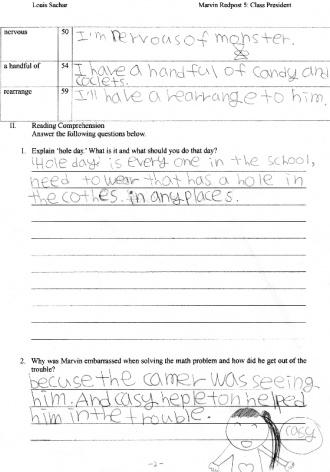 Louis Sachar Marvin Redpost 5: Class President
nervous 50 I'm nervous of monster.
a handful of 54 I have a handful of candy and
coclets.
rearrange 59 I'll have a rearrange to him.
II. Reading Comprehension
Answer the following questions below.
1. Explain 'hole day.' What is it and what should you do that day?
Hole day is every one in the school,
need to wear that has a hole in
the cothes. in any places.
2. Why was Marvin embarrassed when solving the math problem and how did he get out of the
trouble?
becuse the camer was seeing
him. And casy hepleton helped
him in the trouble.
casy
-2-